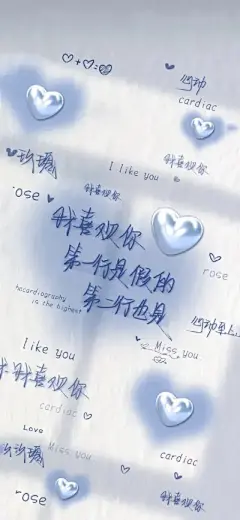 心动
cardiac
玫瑰
I like you
我喜欢你
我喜欢你
rose
我喜欢你
第一行是假的
第二行也是
rose
hocardiography
is the highest
心动
I like you
Miss you
我喜欢你
cardiac
Love
玫瑰
Miss you
cardiac
rose
我喜欢你